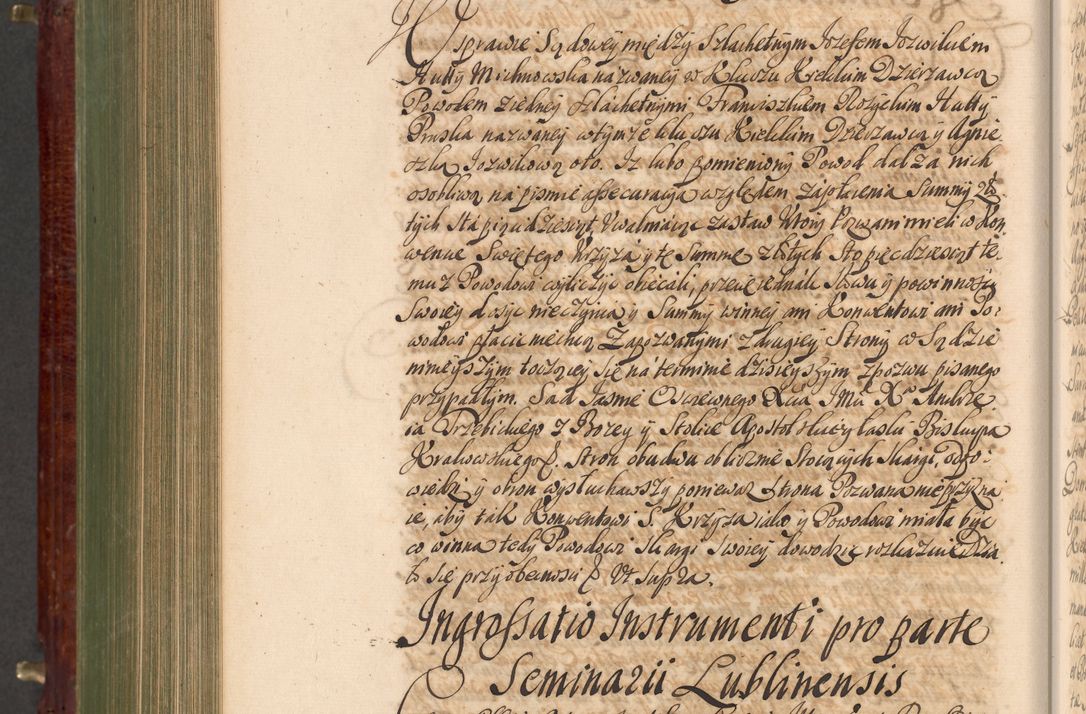 W sprawie Sądowey między Szlachetnym Jozefem Jozwikiem
Hutty Michnowska nazwaney w Kluczu Kieleckim Dzierzawcą
Powodem ziedney Szlachetnymi Franciszkiem Rosyckim Hutty
Pruska nazwaney wtymże kluczu Kieleckim Dzierzawcą y Agnie
szką Jozwikową oto. Iz lubo pomieniony Powod dał za nich
osobliwą na pismie assecuracyą względem zapłacenia Summy Zło
tych Sta pięciudziesiąt Vwalniaiąc zastaw ktory Pozwani mieli w Kon
wencie Swiętego Krzyza y tę Summę złotych Sto pięcdziesiąt te
muz Powodowi wyliczyc obiecali, przecię iednak słowu y powinnosci
Swoiey dosyc nieczynią y Summy winney ani Konwentowi ani Po
wodowi płacic niechcą Zapozwanymi zdrugiey Strony w Sądzie
ninieyszym toczącey się na terminie dzisieyszym zpozwu pisanego
przypadłym. Sąd Jasnie Oswieconego Xcia JMci Xa Andrze
ia Trzebickiego z Bozey y Stolice Apostolskiey łaski Biskupa
Krakowskiego &. Stron obudwu oblicznie Stoiących skargi, odpo
wiedzi y obron wysłuchawszy poniewaz strona Pozwana nieprzyzna
ie, aby tak Konwentowi S. Krzyza iako y Powodowi miała byc
co winna tedy Powodowi skargi swoiey dowodzic roskazuie Dzia
ło się przy obecnosci & Vt supra.
Ingrossatio Instrumenti pro parte
Seminarii Lublinensis